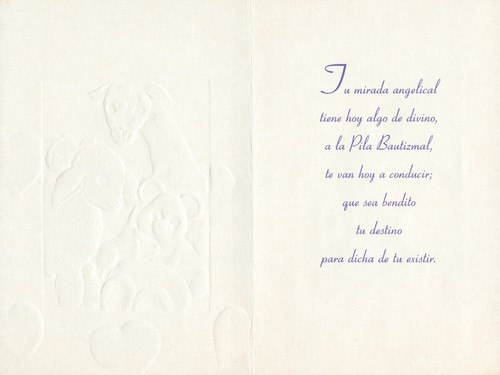 Tu mirada angelical
tiene hoy algo de divino,
a la Pila Bautizmal,
te van hoy a conducir;
que sea bendito
tu destino
para dicha de tu existir.